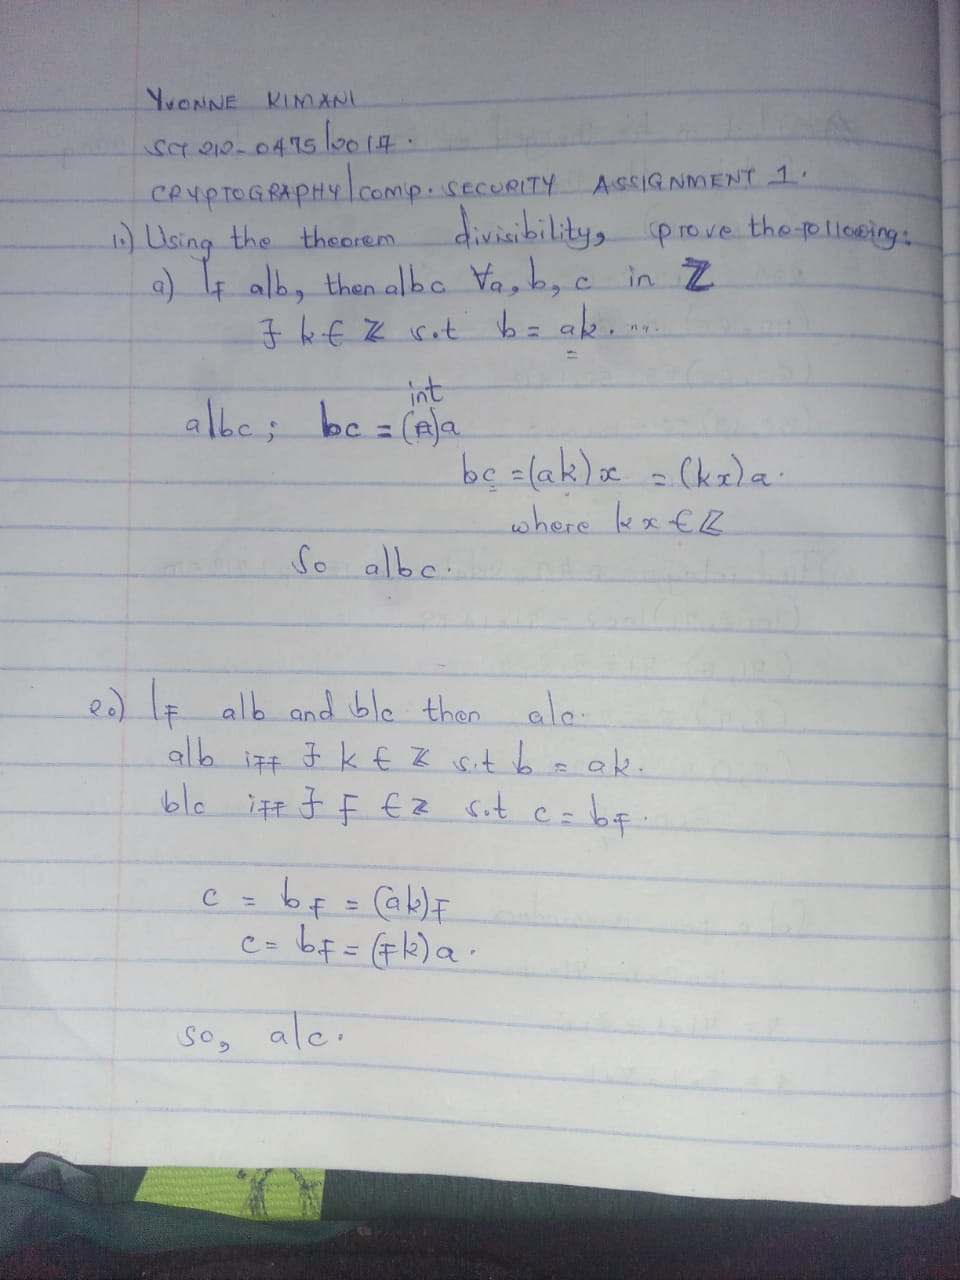 YVONNE KIMANI
SCT 212-0475/2017.
CRYPTOGRAPHY/comp. SECURITY ASSIGNMENT 1.
1.) Using the theorem divisibility, prove the following:
a) If a|b, then a|bc ∀a, b, c in ℤ
∃ k ∈ ℤ s.t b = ak. ...
int
a|bc; bc = (A)a
bc = (ak)x = (kx)a.
where kx ∈ ℤ
So a|bc.
2.) If a|b and b|c then a|c.
a|b iff ∃ k ∈ ℤ s.t b = ak.
b|c iff ∃ F ∈ ℤ s.t c = bF.
c = bF = (ak)F
c = bF = (Fk)a.
so, a|c.